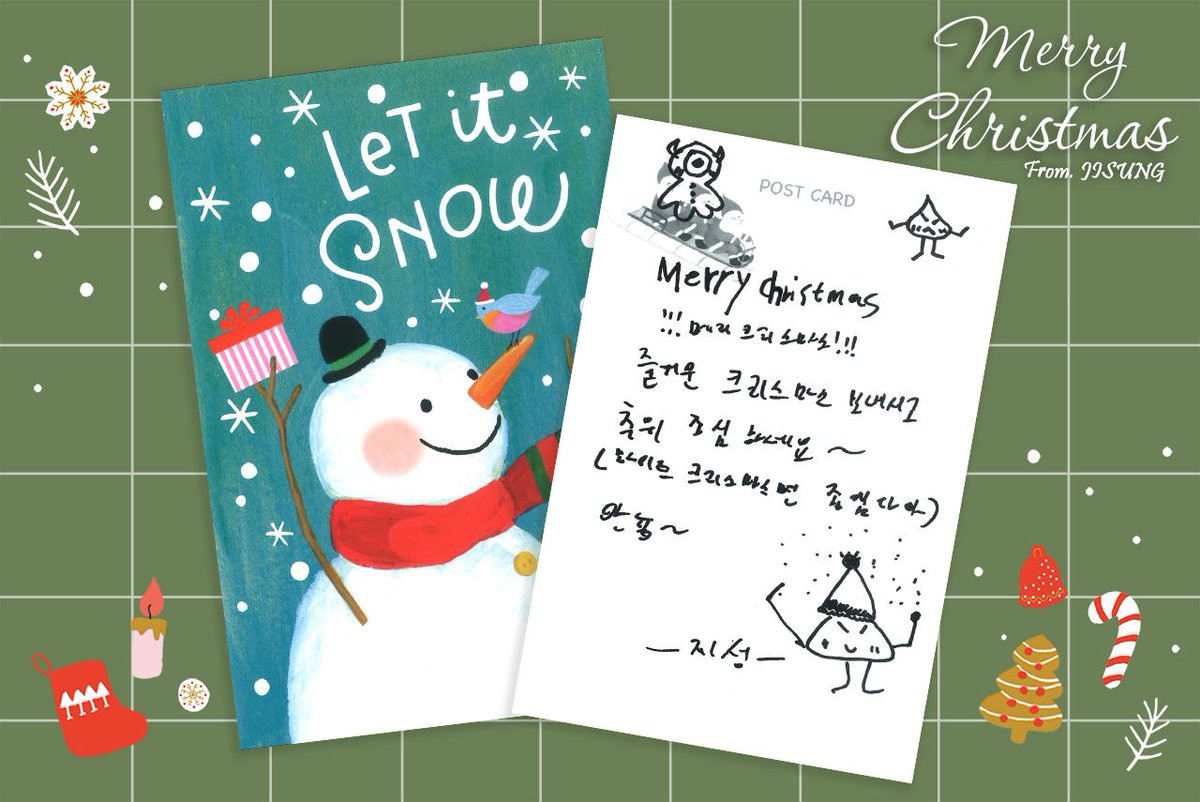 Merry
Christmas
From. JISUNG
LET it
SNOW
POST CARD
Merry christmas
!!! 메리 크리스마스!!!
즐거운 크리스마스 보내시고
추위 조심하세요~
(화이트 크리스마스면 좋겠다아)
안뇽~
-지성-